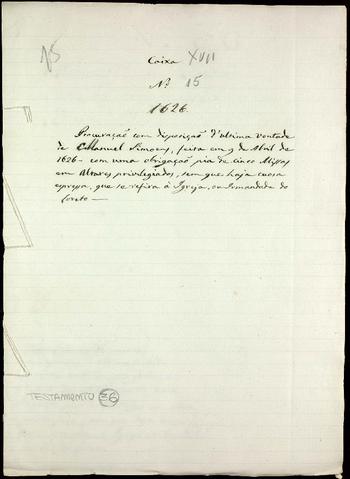 15
Caixa XVII
Nº 15
1626.
Procuração com disposição d'ultima vontade
de Manuel Simoens, feita em 9 de Abril de
1626 - com uma obrigação pia de cinco Missas
em Altares privilegiados, sem que haja cousa
expressa, que se refira á Igreja, ou Irmandade do
Loreto —
TESTAMENTO 36